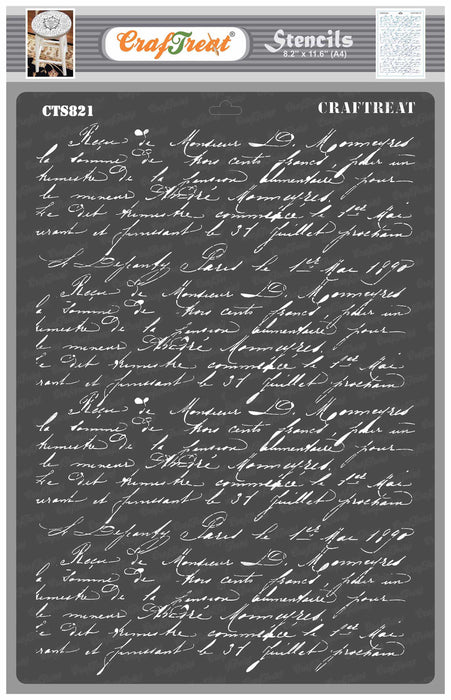 CrafTreat
Stencils
8.2" x 11.6" (A4)
CTS821
CRAFTREAT
Reçu de Monsieur D. Monmeyres
la Somme de trois cents francs, pour un
trimestre de la pension alimentaire pour
le mineur André Monmeyres.
Le dit trimestre commence le 1er Mai
et finissant le 31 Juillet prochain
Paris le 1er Mai 1890
Reçu de Monsieur D. Monmeyres
la Somme de trois cents francs, pour un
trimestre de la pension alimentaire pour
le mineur André Monmeyres.
Le dit trimestre commence le 1er Mai
et finissant le 31 Juillet prochain
Reçu de Monsieur D. Monmeyres
la Somme de trois cents francs, pour un
trimestre de la pension alimentaire pour
le mineur André Monmeyres.
Le dit trimestre commence le 1er Mai
et finissant le 31 Juillet prochain
Paris le 1er Mai 1890
Reçu de Monsieur D. Monmeyres
a Somme de trois cents francs, pour un
trimestre de la pension alimentaire pour
le mineur André Monmeyres.
Le dit trimestre commence le 1er Mai
et finissant le 31 Juillet prochain